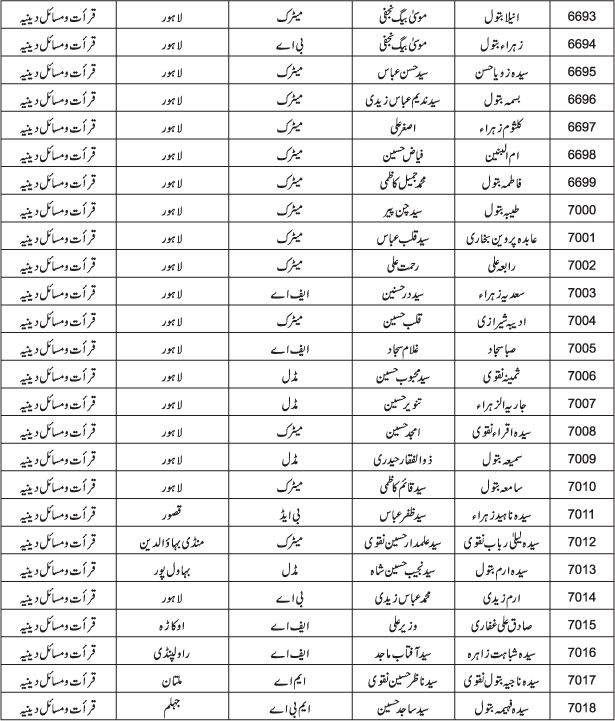 6693 انیلا بتول موسیٰ بیگ نجفی میٹرک لاہور قرأت ومسائل دینیہ
6694 زہراء بتول موسیٰ بیگ نجفی بی اے لاہور قرأت ومسائل دینیہ
6695 سیدہ زویا حسن سید حسن عباس میٹرک لاہور قرأت ومسائل دینیہ
6696 بسمہ بتول سید ندیم عباس زیدی میٹرک لاہور قرأت ومسائل دینیہ
6697 کلثوم زہراء اصغر علی میٹرک لاہور قرأت ومسائل دینیہ
6698 ام البنین فیاض حسین میٹرک لاہور قرأت ومسائل دینیہ
6699 فاطمہ بتول محمد جمیل کاظمی میٹرک لاہور قرأت ومسائل دینیہ
7000 طیبہ بتول سید چن پیر میٹرک لاہور قرأت ومسائل دینیہ
7001 عابدہ پروین بخاری سید قلب عباس میٹرک لاہور قرأت ومسائل دینیہ
7002 رابعہ علی رحمت علی میٹرک لاہور قرأت ومسائل دینیہ
7003 سعدیہ زہراء سید در حسنین ایف اے لاہور قرأت ومسائل دینیہ
7004 ادیبہ شیرازی قلب حسین میٹرک لاہور قرأت ومسائل دینیہ
7005 صبا سجاد غلام سجاد ایف اے لاہور قرأت ومسائل دینیہ
7006 ثمینہ نقوی سید محبوب حسین مڈل لاہور قرأت ومسائل دینیہ
7007 جاریہ الزہراء تنویر حسین مڈل لاہور قرأت ومسائل دینیہ
7008 سیدہ اقراء نقوی امجد حسین میٹرک لاہور قرأت ومسائل دینیہ
7009 سمیعہ بتول ذوالفقار حیدری مڈل لاہور قرأت ومسائل دینیہ
7010 سامعہ بتول سید قائم کاظمی میٹرک لاہور قرأت ومسائل دینیہ
7011 سیدہ ناہید زہراء سید ظفر عباس بی ایڈ قصور قرأت ومسائل دینیہ
7012 سیدہ لیلیٰ رباب نقوی سید علمدار حسین نقوی میٹرک منڈی بہاؤالدین قرأت ومسائل دینیہ
7013 سیدہ ارم بتول سید نجیب حسین شاہ مڈل بہاول پور قرأت ومسائل دینیہ
7014 ارم زیدی محمد عباس زیدی بی اے لاہور قرأت ومسائل دینیہ
7015 صادق علی غفاری وزیر علی ایف اے اوکاڑہ قرأت ومسائل دینیہ
7016 سیدہ شباہت زاہرہ سید آفتاب ماجد ایف اے راولپنڈی قرأت ومسائل دینیہ
7017 سیدہ ناجیہ بتول نقوی سید ناظر حسین نقوی ایم اے ملتان قرأت ومسائل دینیہ
7018 سیدہ فہیمہ بتول سید ساجد حسین ایم بی اے جہلم قرأت ومسائل دینیہ